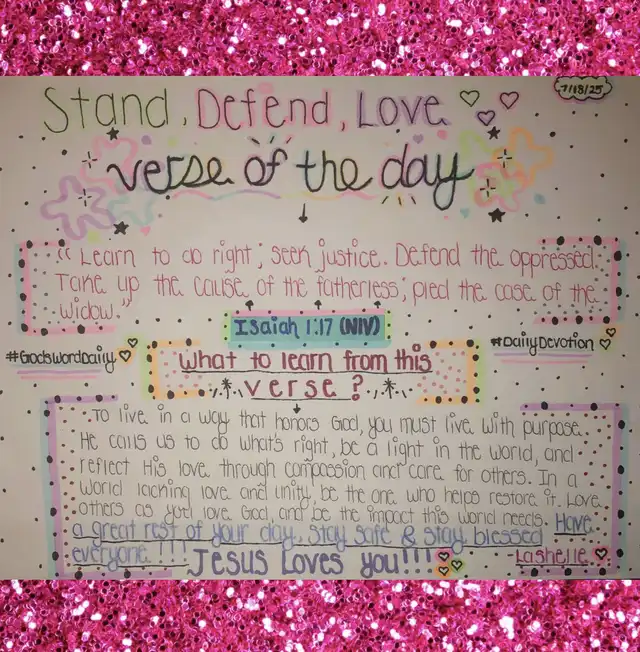 7/18/25
Stand, Defend, Love
verse of the day
"Learn to do right; seek justice. Defend the oppressed.
Take up the cause of the fatherless; pled the case of the
widow."
Isaiah 1:17 (NIV)
#GodsWordDaily
#DailyDevotion
What to learn from this
verse?
To live in a way that honors God, you must live with purpose.
He calls us to do what's right, be a light in the world, and
reflect His love through compassion and care for others. In a
world lacking love and unity, be the one who helps restore it. Love
others as you love God, and be the impact this world needs. Have
a great rest of your day, stay safe & stay blessed
everyone!!!! Jesus Loves you!!!
Lashelle